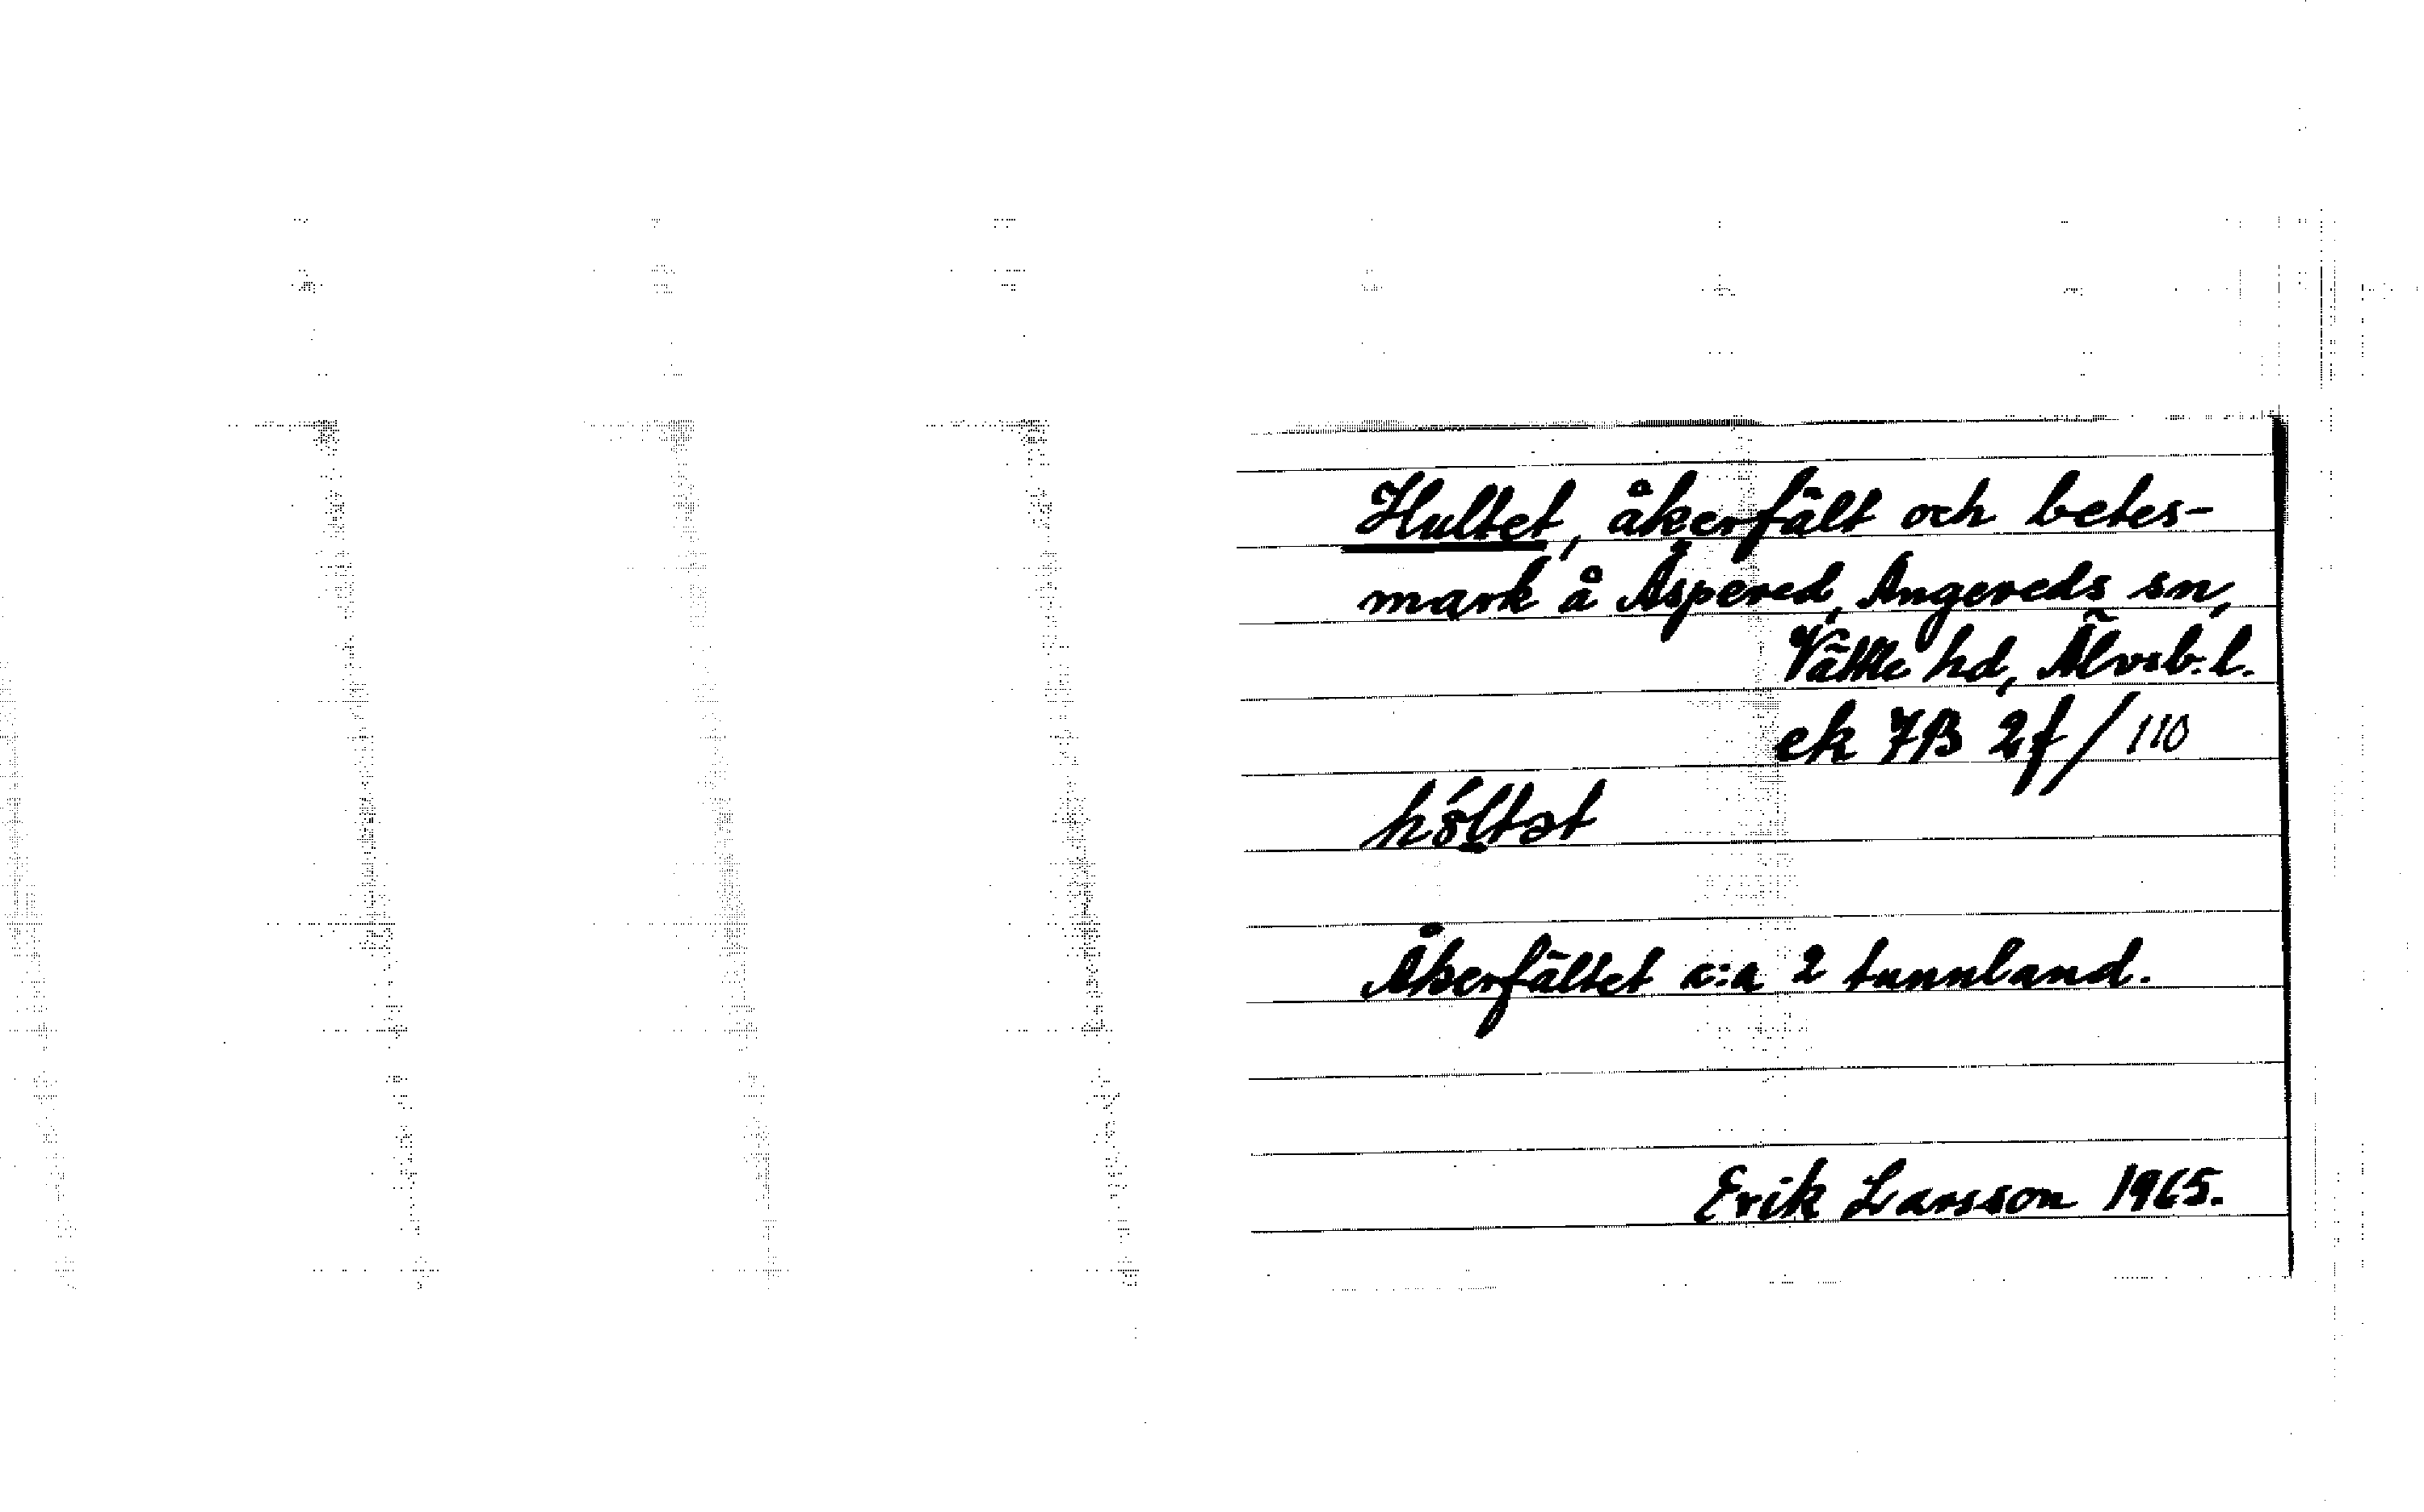 Hultet, åkerfält och betes-
mark å Åspered, Angereds sn,
Vättle hd, Älvsb. l.
ek 7B 2f/110
hó̤ltət
Åkerfältet c:a 2 tunnland.
Erik Larsson 1965.